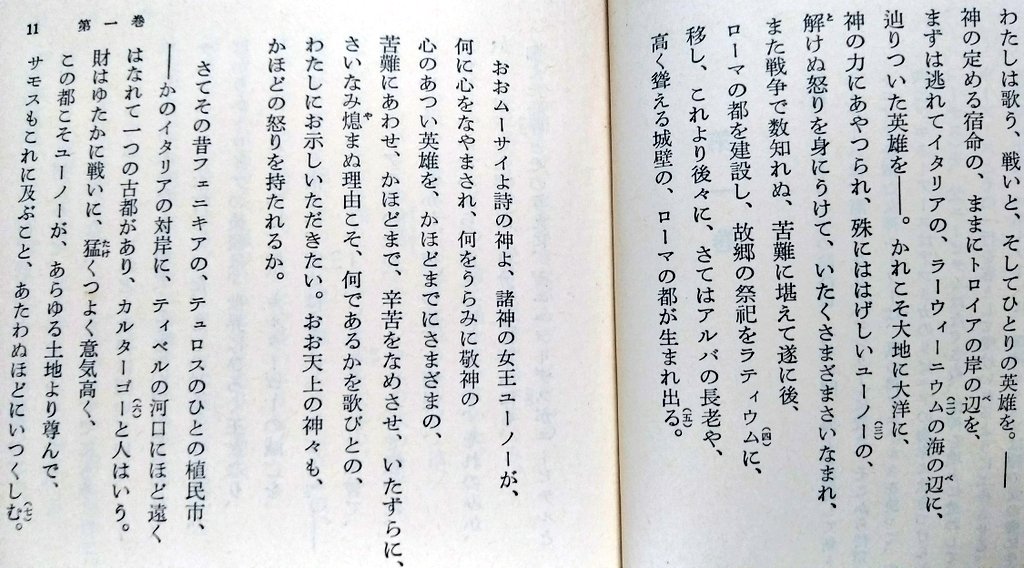 わたしは歌う、戦いと、そしてひとりの英雄を。――
神の定める宿命の、ままにトロイアの岸の辺を、
まずは逃れてイタリアの、ラーウィーニウムの海の辺に、
辿りついた英雄を――。かれこそ大地に大洋に、
神の力にあやつられ、殊にははげしいユーノーの、
解けぬ怒りを身にうけて、いたくさまざまさいなまれ、
また戦争で数知れぬ、苦難に堪えて遂に後、
ローマの都を建設し、故郷の祭祀をラティウムに、
移し、これより後々に、さてはアルバの長老や、
高く聳える城壁の、ローマの都が生まれ出る。
おおムーサイよ詩の神よ、諸神の女王ユーノーが、
何に心をなやまされ、何をうらみに敬神の
心のあつい英雄を、かほどまでにさまざまの、
苦難にあわせ、かほどまで、辛苦をなめさせ、いたずらに、
さいなみ熄まぬ理由こそ、何であるかを歌びとの、
わたしにお示しいただきたい。おお天上の神々も、
かほどの怒りを持たれるか。
さてその昔フェニキアの、テュロスのひとの植民市、
――かのイタリアの対岸に、ティベルの河口にほど遠く
はなれて一つの古都があり、カルターゴーと人はいう。
財はゆたかに戦いに、猛くつよく意気高く、
この都こそユーノーが、あらゆる土地より尊んで、
サモスもこれに及ぶこと、あたわぬほどにいつくしむ。
11 第一巻